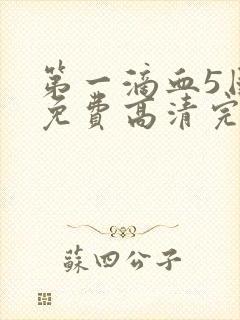 第一滴血5
免费高清完
蘇四公子